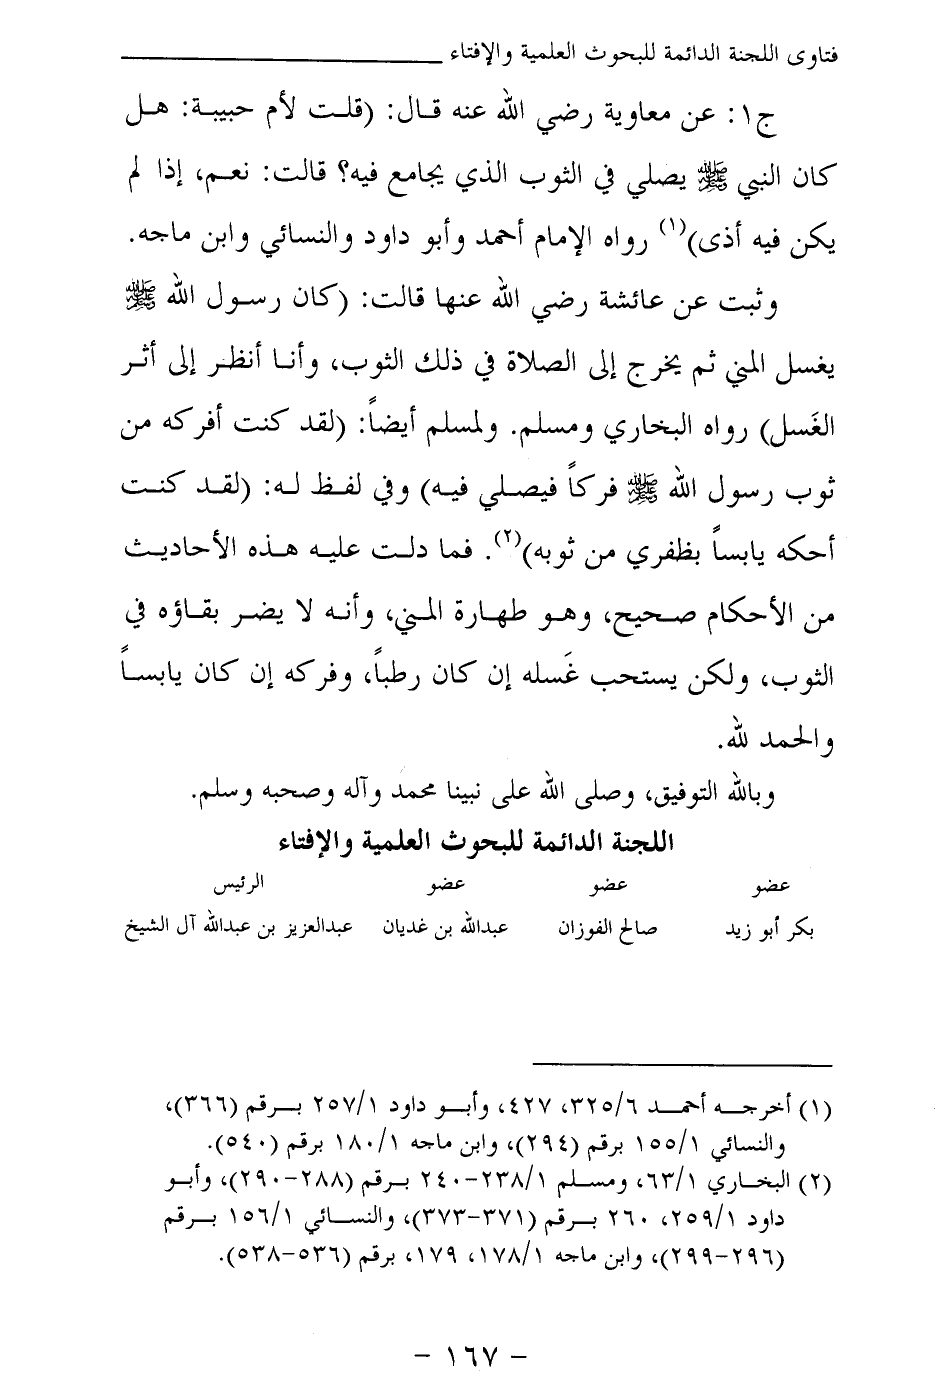 فتاوى اللجنة الدائمة للبحوث العلمية والإفتاء
ج١: عن معاوية رضي الله عنه قال: (قلت لأم حبيبة: هل
كان النبي ﷺ يصلي في الثوب الذي يجامع فيه؟ قالت: نعم، إذا لم
يكن فيه أذى)(١) رواه الإمام أحمد وأبو داود والنسائي وابن ماجه.
وثبت عن عائشة رضي الله عنها قالت: (كان رسول الله ﷺ
يغسل المني ثم يخرج إلى الصلاة في ذلك الثوب، وأنا أنظر إلى أثر
الغَسل) رواه البخاري ومسلم. ولمسلم أيضاً: (لقد كنت أفركه من
ثوب رسول الله ﷺ فركاً فيصلي فيه) وفي لفظ له: (لقد كنت
أحكه يابساً بظفري من ثوبه)(٢). فما دلت عليه هذه الأحاديث
من الأحكام صحيح، وهو طهارة المني، وأنه لا يضر بقاؤه في
الثوب، ولكن يستحب غَسله إن كان رطباً، وفركه إن كان يابساً
والحمد لله.
وبالله التوفيق، وصلى الله على نبينا محمد وآله وصحبه وسلم.
اللجنة الدائمة للبحوث العلمية والإفتاء
عضو عضو عضو الرئيس
بكر أبو زيد صالح الفوزان عبدالله بن غديان عبدالعزيز بن عبدالله آل الشيخ
(١) أخرجه أحمد ٣٢٥/٦، ٤٢٧، وأبو داود ٢٥٧/١ برقم (٣٦٦)،
والنسائي ١٥٥/١ برقم (٢٩٤)، وابن ماجه ١٨٠/١ برقم (٥٤٠).
(٢) البخاري ٦٣/١، ومسلم ٢٣٨/١-٢٤٠ برقم (٢٨٨-٢٩٠)، وأبو
داود ٢٥٩/١، ٢٦٠ برقم (٣٧١-٣٧٣)، والنسائي ١٥٦/١ برقم
(٢٩٦-٢٩٩)، وابن ماجه ١٧٨/١، ١٧٩، برقم (٥٣٦-٥٣٨).
- ١٦٧ -